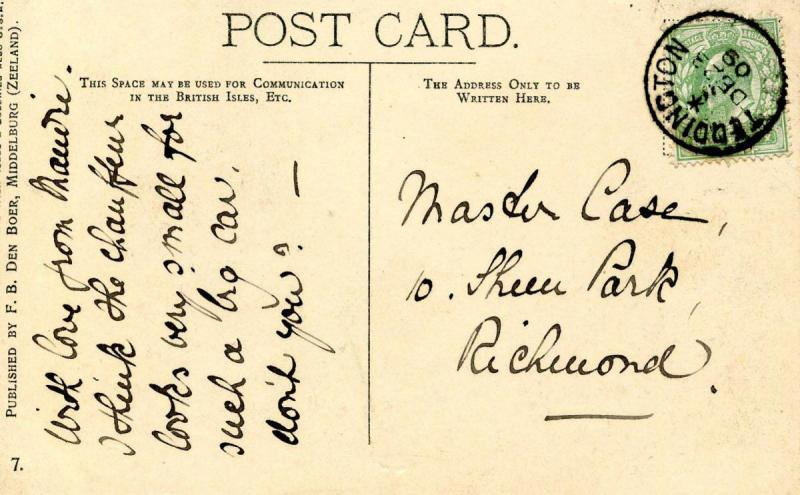 POST CARD.
THIS SPACE MAY BE USED FOR COMMUNICATION
IN THE BRITISH ISLES, ETC.
THE ADDRESS ONLY TO BE
WRITTEN HERE.
With love from Maudie.
I think the chauffeur
looks very small for
such a big car,
don't you? —
Master Case,
10. Sheen Park,
Richmond.
TEDDINGTON
DE
09
PUBLISHED BY F. B. DEN BOER, MIDDELBURG (ZEELAND).
7.